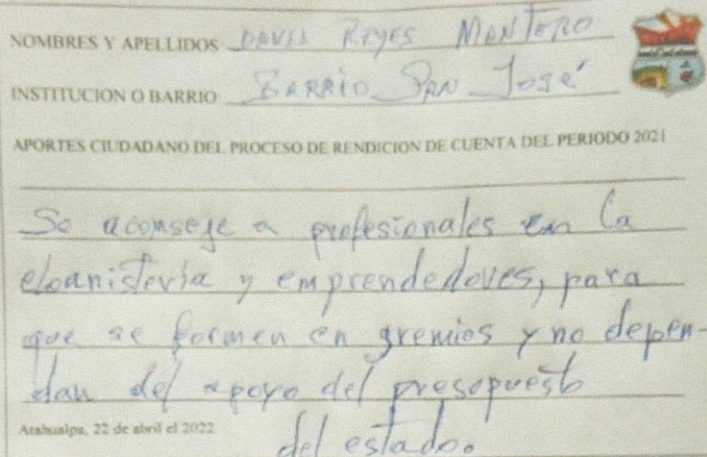 NOMBRES Y APELLIDOS DAVID REYES MONTERO
INSTITUCION O BARRIO BARRIO SAN José
APORTES CIUDADANO DEL PROCESO DE RENDICION DE CUENTA DEL PERIODO 2021
Se aconseje a profesionales en la
ebanistería y emprendedores, para
que se formen en gremios y no depen-
dan del apoyo del presopuesto
del estado.
Atahualpa, 22 de abril el 2022